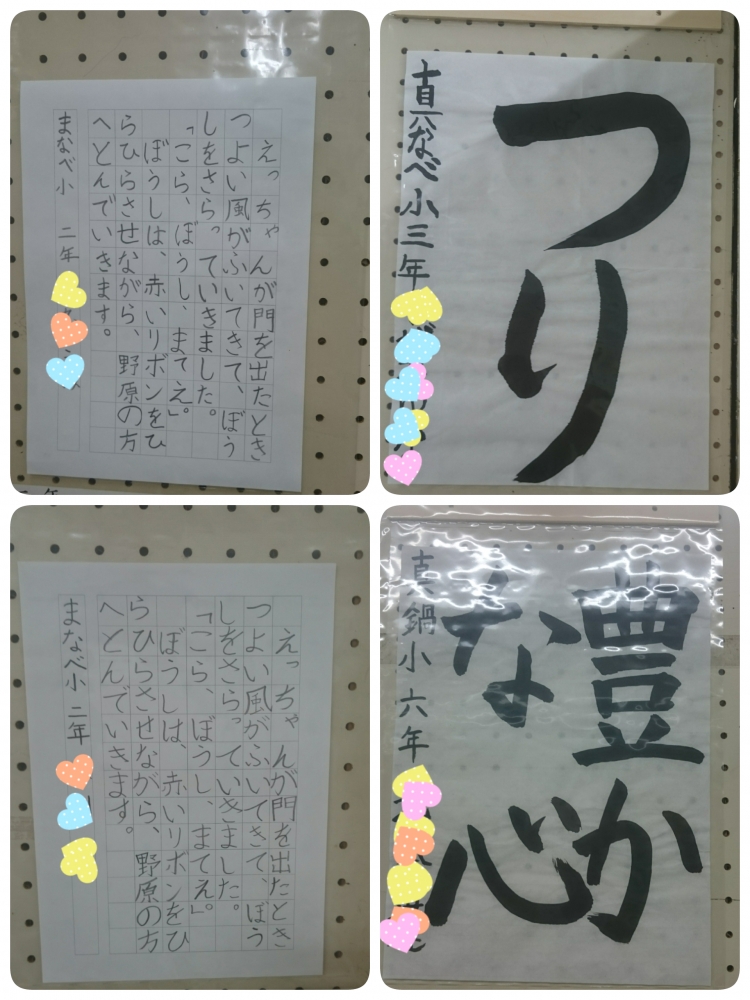 えっちゃんが門を出たとき
つよい風がふいてきて、ぼう
しをさらっていきました。
「こら、ぼうし、まてえ。」
ぼうしは、赤いリボンをひ
らひらさせながら、野原の方
へとんでいきます。
まなべ小 二年
つり
真なべ小三年
えっちゃんが門を出たとき
つよい風がふいてきて、ぼう
しをさらっていきました。
「こら、ぼうし、まてえ。」
ぼうしは、赤いリボンをひ
らひらさせながら、野原の方
へとんでいきます。
まなべ小 二年
豊か
な心
真鍋小 六年